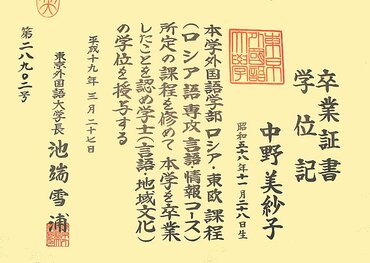 卒業証書
学位記
中野美紗子
昭和五十八年十一月二十八日生
本学外国語学部ロシア・東欧課程
(ロシア語専攻言語・情報コース)
所定の課程を修めて本学を卒業
したことを認め学士(言語・地域文化)
の学位を授与する
平成十九年三月二十七日
東京外国語大学長 池端雪浦
第二八九〇二号